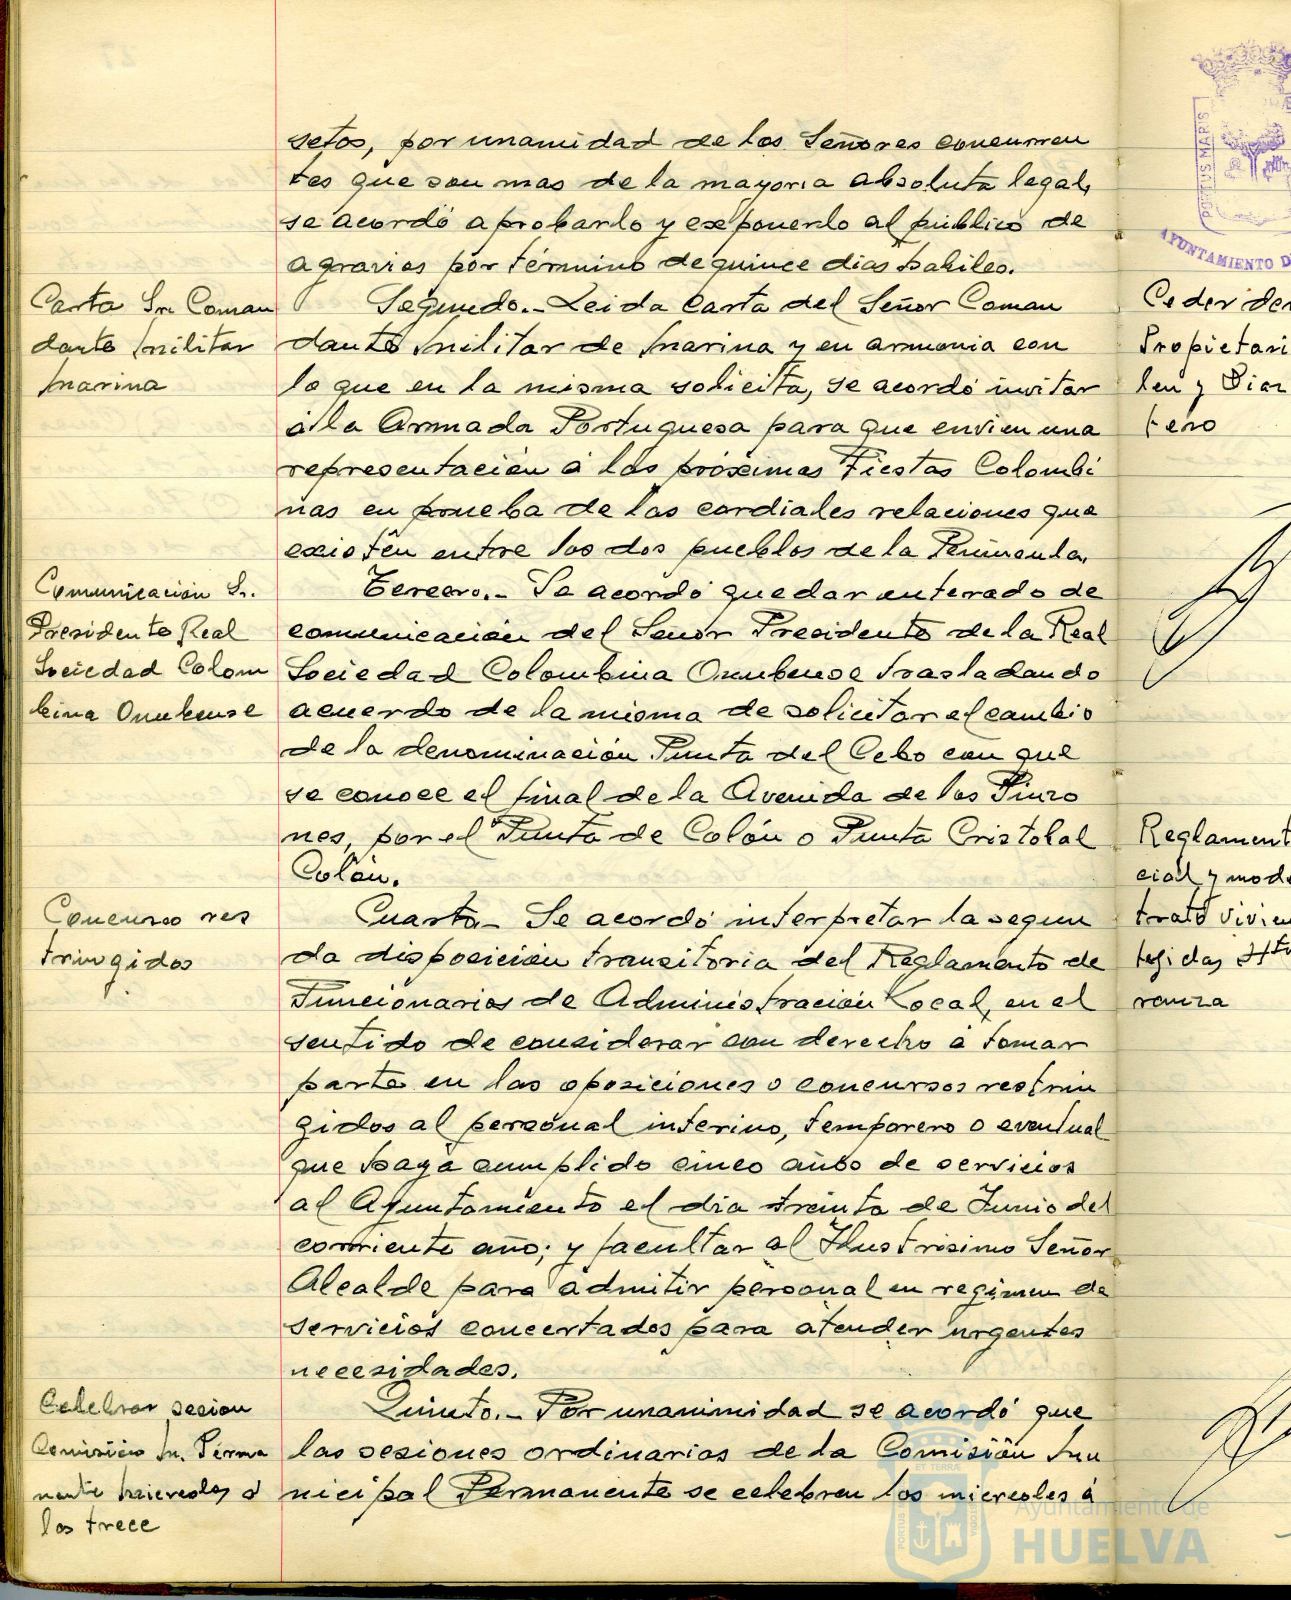 setos, por unamidad de los Señores concurren
tes que son mas de la mayoria absoluta legal,
se acordó aprobarlo y exponerlo al público de
agravios por término de quince dias habiles.
Carta Sr. Coman
dante Militar
Marina
Segundo.- Leida carta del Señor Coman
dante Militar de Marina y en armonia con
lo que en la misma solicita, se acordó invitar
á la Armada Portuguesa para que envien una
representación á las próximas Fiestas Colombi
nas en prueba de las cordiales relaciones que
existen entre los dos pueblos de la Peninsula.
Comunicación Sr.
Presidente Real
Sociedad Colom
bina Onubense
Tercero.- Se acordó quedar enterado de
comunicación del Señor Presidente de la Real
Sociedad Colombina Onubense trasladando
acuerdo de la misma de solicitar el cambio
de la denominación Punta del Cebo con que
se conoce el final de la Avenida de los Pinzo
nes, por el Punta de Colón o Punta Cristobal
Colón.
Concurso res
tringidos
Cuarto- Se acordó interpretar la segun
da disposición transitoria del Reglamento de
Funcionarios de Administración Local, en el
sentido de considerar con derecho á tomar
parte en las oposiciones o concursos restrin
gidos al personal interino, temporero o eventual
que haya cumplido cinco años de servicios
al Ayuntamiento el dia treinta de Junio del
corriente año; y facultar al Ilustrisimo Señor
Alcalde para admitir personal en regimen de
servicios concertados para atender urgentes
necesidades.
Celebrar sesion
Comisión M. Perma
nente miercoles á
las trece
Quinto.- Por unanimidad se acordó que
las sesiones ordinarias de la Comisión Mu
nicipal Permanente se celebren los miercoles á
PORTUS MARIS
AYUNTAMIENTO D
Ceder
Propietari
len y
tero
Reglament
cial y mod
trato vivien
tegidas
ranza
Ayuntamiento de
HUELVA